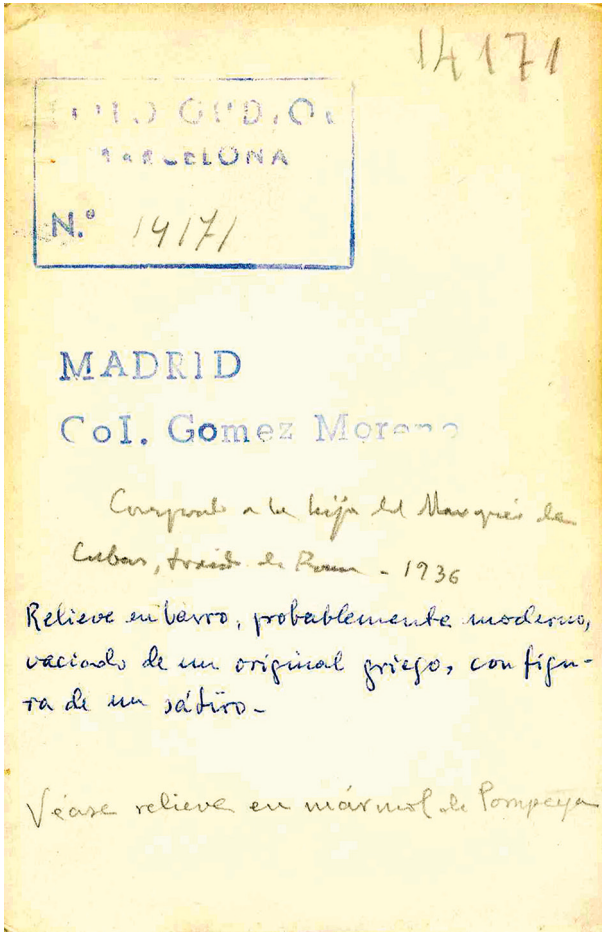 14171
BARCELONA
N.º 14171
MADRID
Col. Gomez Moreno
Comprado a la hija del Marqués de
Cubas, traido de Roma - 1936
Relieve en barro, probablemente moderno,
vaciado de un original griego, con figu-
ra de un sátiro -
Véase relieve en mármol de Pompeya